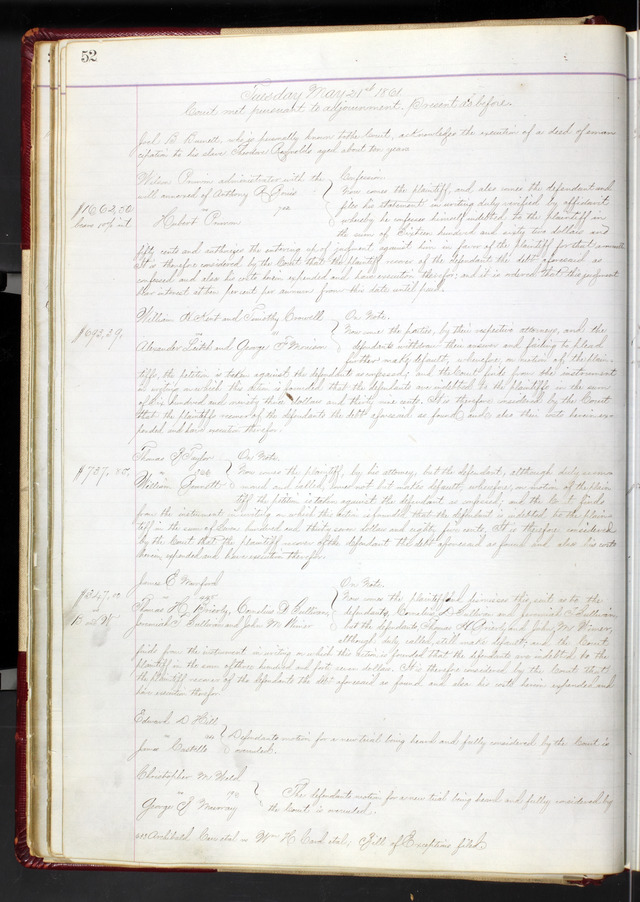 52
Tuesday May 21st 1861
Court met pursuant to adjournment. Present as before.
Joel B. who is personally known to the Court, acknowledges the execution of a deed of eman
cipation to his slave Theodore Reynolds aged about ten years
administrator with the } Confession.
will annexed of Anthony } Now comes the plaintiff, and also comes the defendant and
vs } files his statement in writing duly verified by affidavit
Hubert } whereby he confesses himself indebted to the plaintiff in
$1662,50
bears 10% int
the sum of Sixteen hundred and sixty two dollars and
fifty cents and authorizes the entering up of judgment against him in favor of the plaintiff for that amount
It is therefore considered by the Court that the plaintiff recover of the defendant the debt aforesaid as
confessed and also his costs herein expended and have execution therefor; and it is ordered that this judgment
bear interest at ten per cent per annum from this date until paid.
William H. Kent and Timothy } On Note.
$693,39.
vs } Now come the parties, by their respective attorneys, and the
Alexander Leitch and George F. } defendants withdraw their answer and failing to plead
further make default, wherefore, on motion of the plain-
tiffs, the petition is taken against the defendants as confessed; and the Court finds from the instrument
in writing on which this action is founded that the defendants are indebted to the plaintiffs in the sum
of six hundred and ninety three dollars and thirty nine cents. It is therefore considered by the Court
that the plaintiffs recover of the defendants the debt aforesaid as found and also their costs herein ex-
pended and have execution therefor.
Thomas Taylor } On Note.
$737.
vs } Now comes the plaintiff, by his attorney, but the defendant, although duly sum-
William } moned and called, comes not but makes default; wherefore, on motion of the plain-
tiff the petition is taken against the defendant as confessed, and the Court finds
from the instrument in writing on which this action is founded that the defendant is indebted to the plain-
tiff in the sum of seven hundred and thirty seven dollars and cents. It is therefore considered
by the Court that the plaintiff recover of the defendant the debt aforesaid as found and also his costs
herein expended and have execution therefor.
James E. } On Note.
$347,
vs } Now comes the plaintiff and dismisses this suit as to the
Thomas H. Brierly, Cornelius D. Sullivan, } defendants, Cornelius D. Sullivan and Jeremiah Sullivan,
Jeremiah Sullivan and John M. Wimer } but the defendants Thomas H. Brierly and John M. Wimer,
although duly called, still make default; and the Court
finds from the instrument in writing on which this action is founded that the defendants are indebted to the
plaintiff in the sum of three hundred and forty seven dollars. It is therefore considered by the Court that
the plaintiff recover of the defendants the debt aforesaid as found and also his costs herein expended and
have execution therefor.
Edward D. Hill
vs } Defendants motion for a new trial being heard and fully considered by the Court is
James Castello } overruled.
Christopher M.
vs } The defendants motion for a new trial being heard and fully considered by
George S. } the Court is overruled.
Archibald et al vs Wm H. Card et al, Bill of Exceptions filed